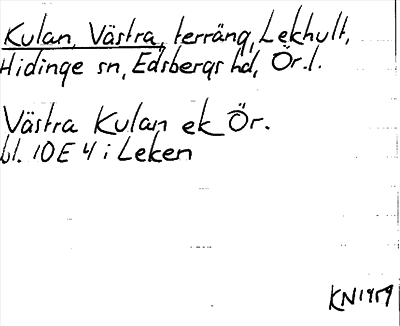 Kulan, Västra, terräng, Lekhult,
Hidinge sn, Edsbergs hd, Ör.l.
Västra Kulan ek Ör.
bl. 10E 4 i Leken
KN1959